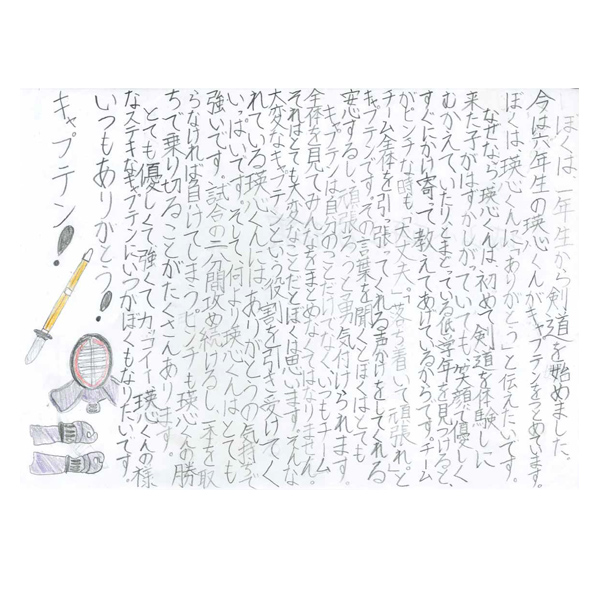 ぼくは、一年生から剣道を始めました。
今は六年生の瑛心くんがキャプテンをつとめています。
ぼくは、瑛心くんに「ありがとう」と伝えたいです。
なぜなら、瑛心くんは、初めて剣道を体験しに
来た子がはずかしがっていても、笑顔で優しく
むかえていたりとまどっている低学年を見つけると、
すぐにかけ寄って教えてあげているからです。チーム
がピンチな時も「大丈夫。」「落ち着いて頑張れ。」と
チーム全体を引っ張ってくれる声かけをしてくれる
キャプテンです。その言葉を聞くとぼくはとても
安心するし、頑張ろうと勇気付けられます。
キャプテンは自分のことだけでなく、いつもチーム
全体を見てみんなをまとめなくてはなりません。
それはとても大変なことだとぼくは思います。そんな
大変なキャプテンという役割を引き受けてく
れている瑛心くんにはありがとうの気持ちで
いっぱいです。そして、何より瑛心くんはとても
強いです。試合の二分間攻め続けるし、一本を取
らなければ負けてしまうピンチも瑛心くんの勝
ちで乗り切ることがたくさんあります。
とても優しくて強くてカッコイイ瑛心くんの様
なステキなキャプテンにいつかぼくもなりたいです。
いつもありがとう!
キャプテン!